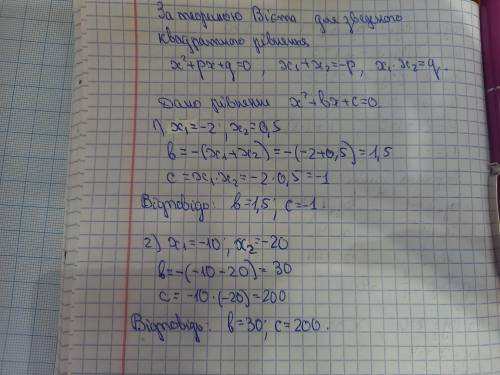 За теоремою Вієта для зведеного
квадратного рівняння
x²+px+q=0, x₁+x₂=-p, x₁·x₂=q.
Дано рівняння x²+bx+c=0.
1) x₁=-2; x₂=0,5
b=-(x₁+x₂)=-(-2+0,5)=1,5
c=x₁·x₂=-2·0,5=-1
Відповідь: b=1,5; c=-1.
2) x₁=-10; x₂=-20
b=-(-10-20)=30
c=-10·(-20)=200
Відповідь: b=30; c=200.